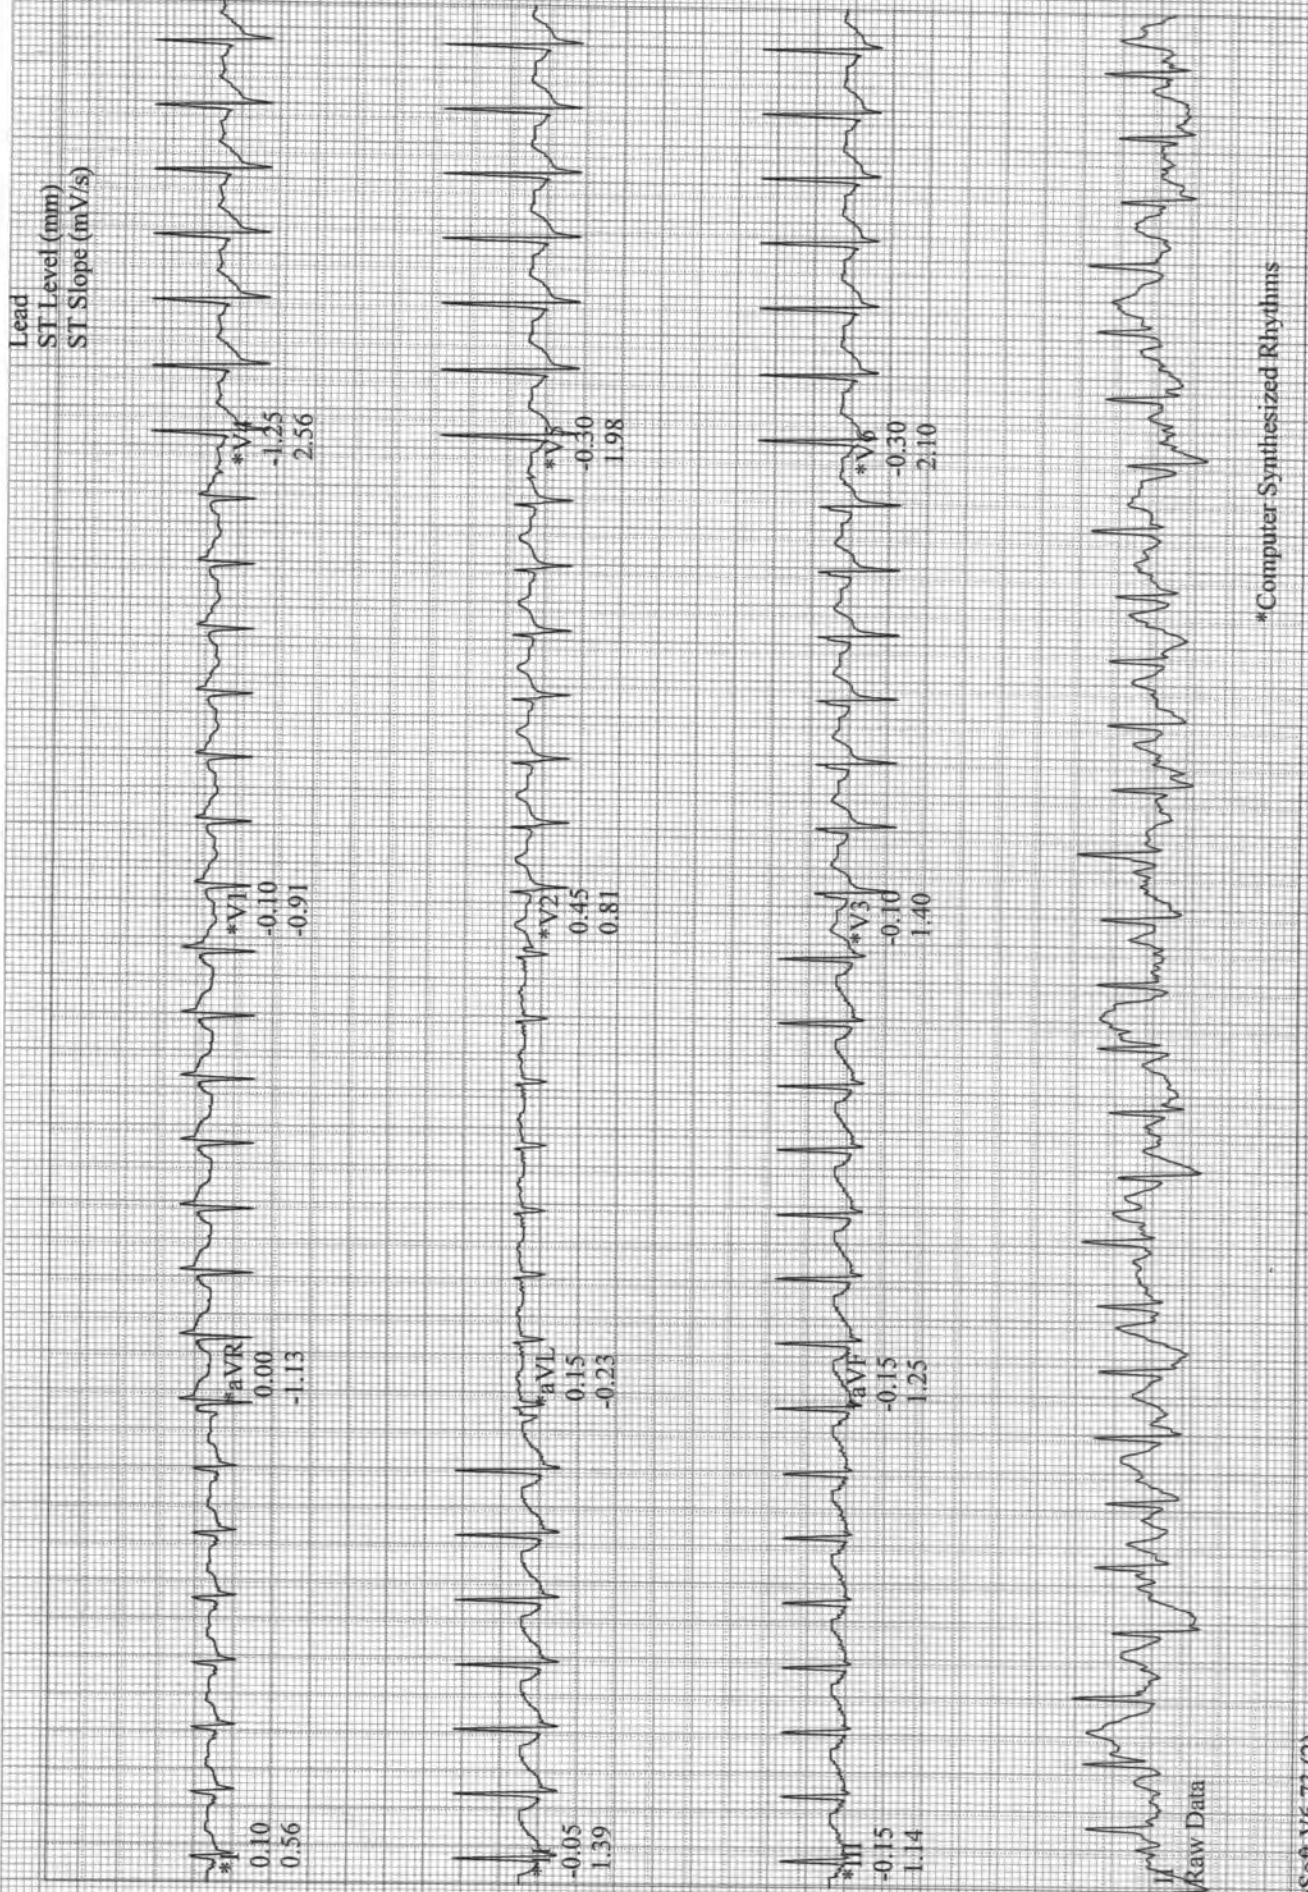 Lead
ST Level (mm)
ST Slope (mV/s)
*I
0.10
0.56
*aVR
0.00
-1.13
*V1
-0.10
-0.91
*V4
-1.25
2.56
*II
-0.05
1.39
*aVL
0.15
-0.23
*V2
0.45
0.81
*V5
-0.30
1.98
*III
-0.15
1.14
*aVF
-0.15
1.25
*V3
-0.10
1.40
*V6
-0.30
2.10
II
Raw Data
*Computer Synthesized Rhythms